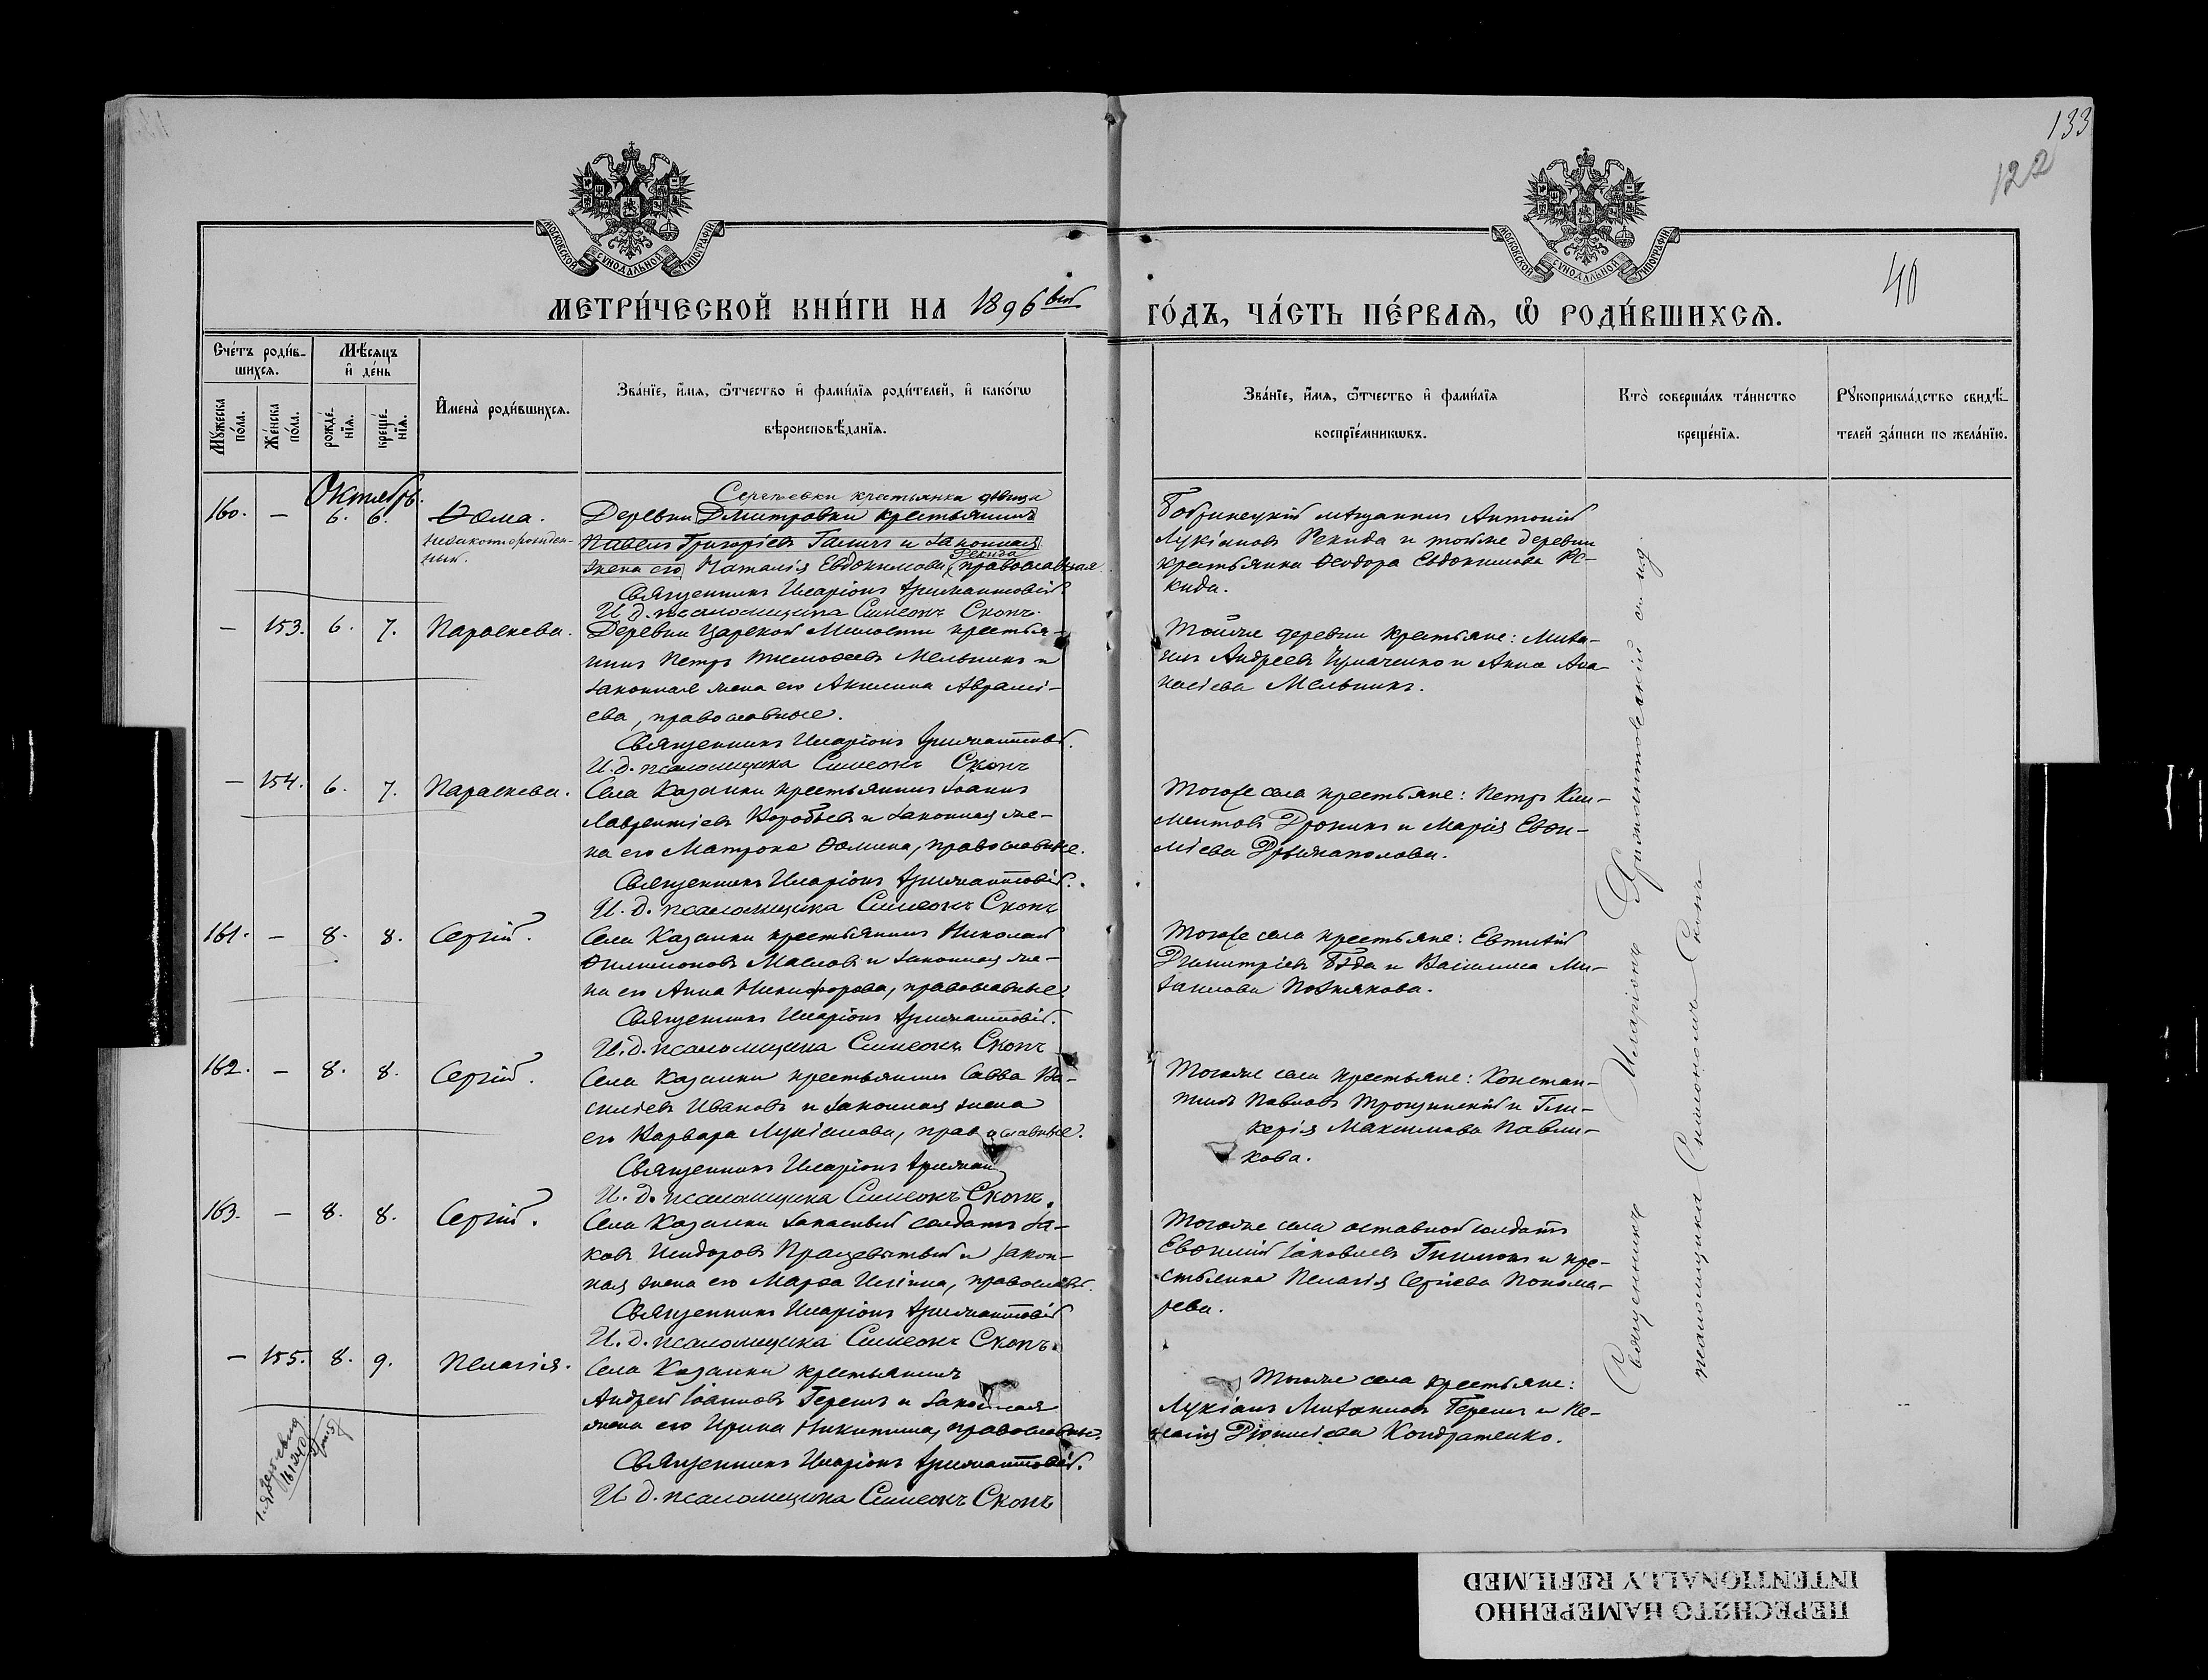 133
122
40
МОСКОВСКОЙ СУНОДАЛЬНОЙ ТИПОГРАФІИ
МОСКОВСКОЙ СУНОДАЛЬНОЙ ТИПОГРАФІИ
МЕТРИ́ЧЕСКОЙ КНИ́ГИ НА 1896 вой
ГО́ДЪ, ЧА́СТЬ ПЕ́РВАѦ, Ѽ РОДИ́ВШИХСѦ.
Сче́тъ роди́в-
шихсѧ.
Мꙋ́жеска по́ла.
Же́нска по́ла.
Мѣ́сѧцъ
и҆ де́нь
рожде́-
нїѧ.
креще́-
нїѧ.
И҆мена̀ роди́вшихсѧ.
Зва́нїе, и҆́мѧ, ѻ҆́тчество и҆ фами́лїѧ роди́телей, и҆ како́гѡ
вѣроисповѣ́данїѧ.
Зва́нїе, и҆́мѧ, ѻ҆́тчество и҆ фами́лїѧ
воспрїе́мникѡвъ.
Кто̀ соверша́лъ та́инство
креще́нїѧ.
Рꙋкоприкла́дство свидѣ́-
телей за́писи по жела́нїю.
Октябрь.
160. — 6. 6. Ѳома.
незаконорожден-
ный.
крестьянка дѣвица
Деревни Дмитровки крестьянинъ
Павелъ Григоріевъ Ганичъ и законная
Рекида
жена его Наталія Евдокимова, православная
Священникъ Иларіонъ Дримантовій
И. д. псаломщика Симеонъ Скопъ.
Бобринецкій мѣщанинъ Антоній
Лукіановъ Рекида и тойже деревни
крестьянка Ѳеодора Евдокимова Ре-
кида.
— 153. 6. 7. Параскева.
Деревни Царской Милости крестья-
нинъ Петръ Тимоѳеевъ Мельникъ и
законная жена его Акилина Аврамі-
ева, православные.
Священникъ Иларіонъ
И. д. псаломщика Симеонъ Скопъ
Тойже деревни крестьяне: Миха-
илъ Андреевъ Чумаченко и Анна Аѳа-
насіева Мельникъ.
— 154. 6. 7. Параскева.
Села Казанки крестьянинъ Іоаннъ
Лаврентіевъ Воробьевъ и законная же-
на его Матрона Ѳомина, православные.
Священникъ Иларіонъ
И. д. псаломщика Симеонъ Скопъ
Тогоже села крестьяне: Петръ Кли-
ментовъ Дроникъ и Марія Евѳи-
міева
161. — 8. 8. Сергій.
Села Казанки крестьянинъ Николай
Филимоновъ Масловъ и законная же-
на его Анна Никифорова, православные.
Священникъ Иларіонъ
И. д. псаломщика Симеонъ Скопъ
Тогоже села крестьяне: Евтихій
Димитріевъ Бѣда и Василиса Ми-
хаилова Познякова.
162. — 8. 8. Сергій.
Села Казанки крестьянинъ Савва Ва-
силіевъ Ивановъ и законная жена
его Варвара Лукіанова, православные.
Священникъ Иларіонъ
И. д. псаломщика Симеонъ Скопъ.
Тогоже села крестьяне: Констан-
тинъ Павловъ Трощинскій и Гли-
керія Максимова Павли-
кова.
163. — 8. 8. Сергій.
Села Казанки запасный солдатъ Іа-
ковъ Исидоровъ и закон-
ная жена его Марѳа Иліина, православ.
Священникъ Иларіонъ
И. д. псаломщика Симеонъ Скопъ.
Тогоже села отставной солдатъ
Евѳимій Іаковлевъ и кре-
стьянка Пелагія Сергіева Понома-
рева.
— 155. 8. 9. Пелагія.
Села Казанки крестьянинъ
Андрей Іоанновъ Герешъ и законная
жена его Ирина Никитина, православные.
Священникъ Иларіонъ
И. д. псаломщика Симеонъ Скопъ
Тогоже села крестьяне:
Лукіанъ Михаиловъ Герешъ и Пе-
лагія Діонисіева Кондратенко.
Священникъ Иларіонъ
псаломщика Симеонъ Скопъ
ПЕРЕСНЯТО НАМЕРЕННО
INTENTIONALLY REFILMED